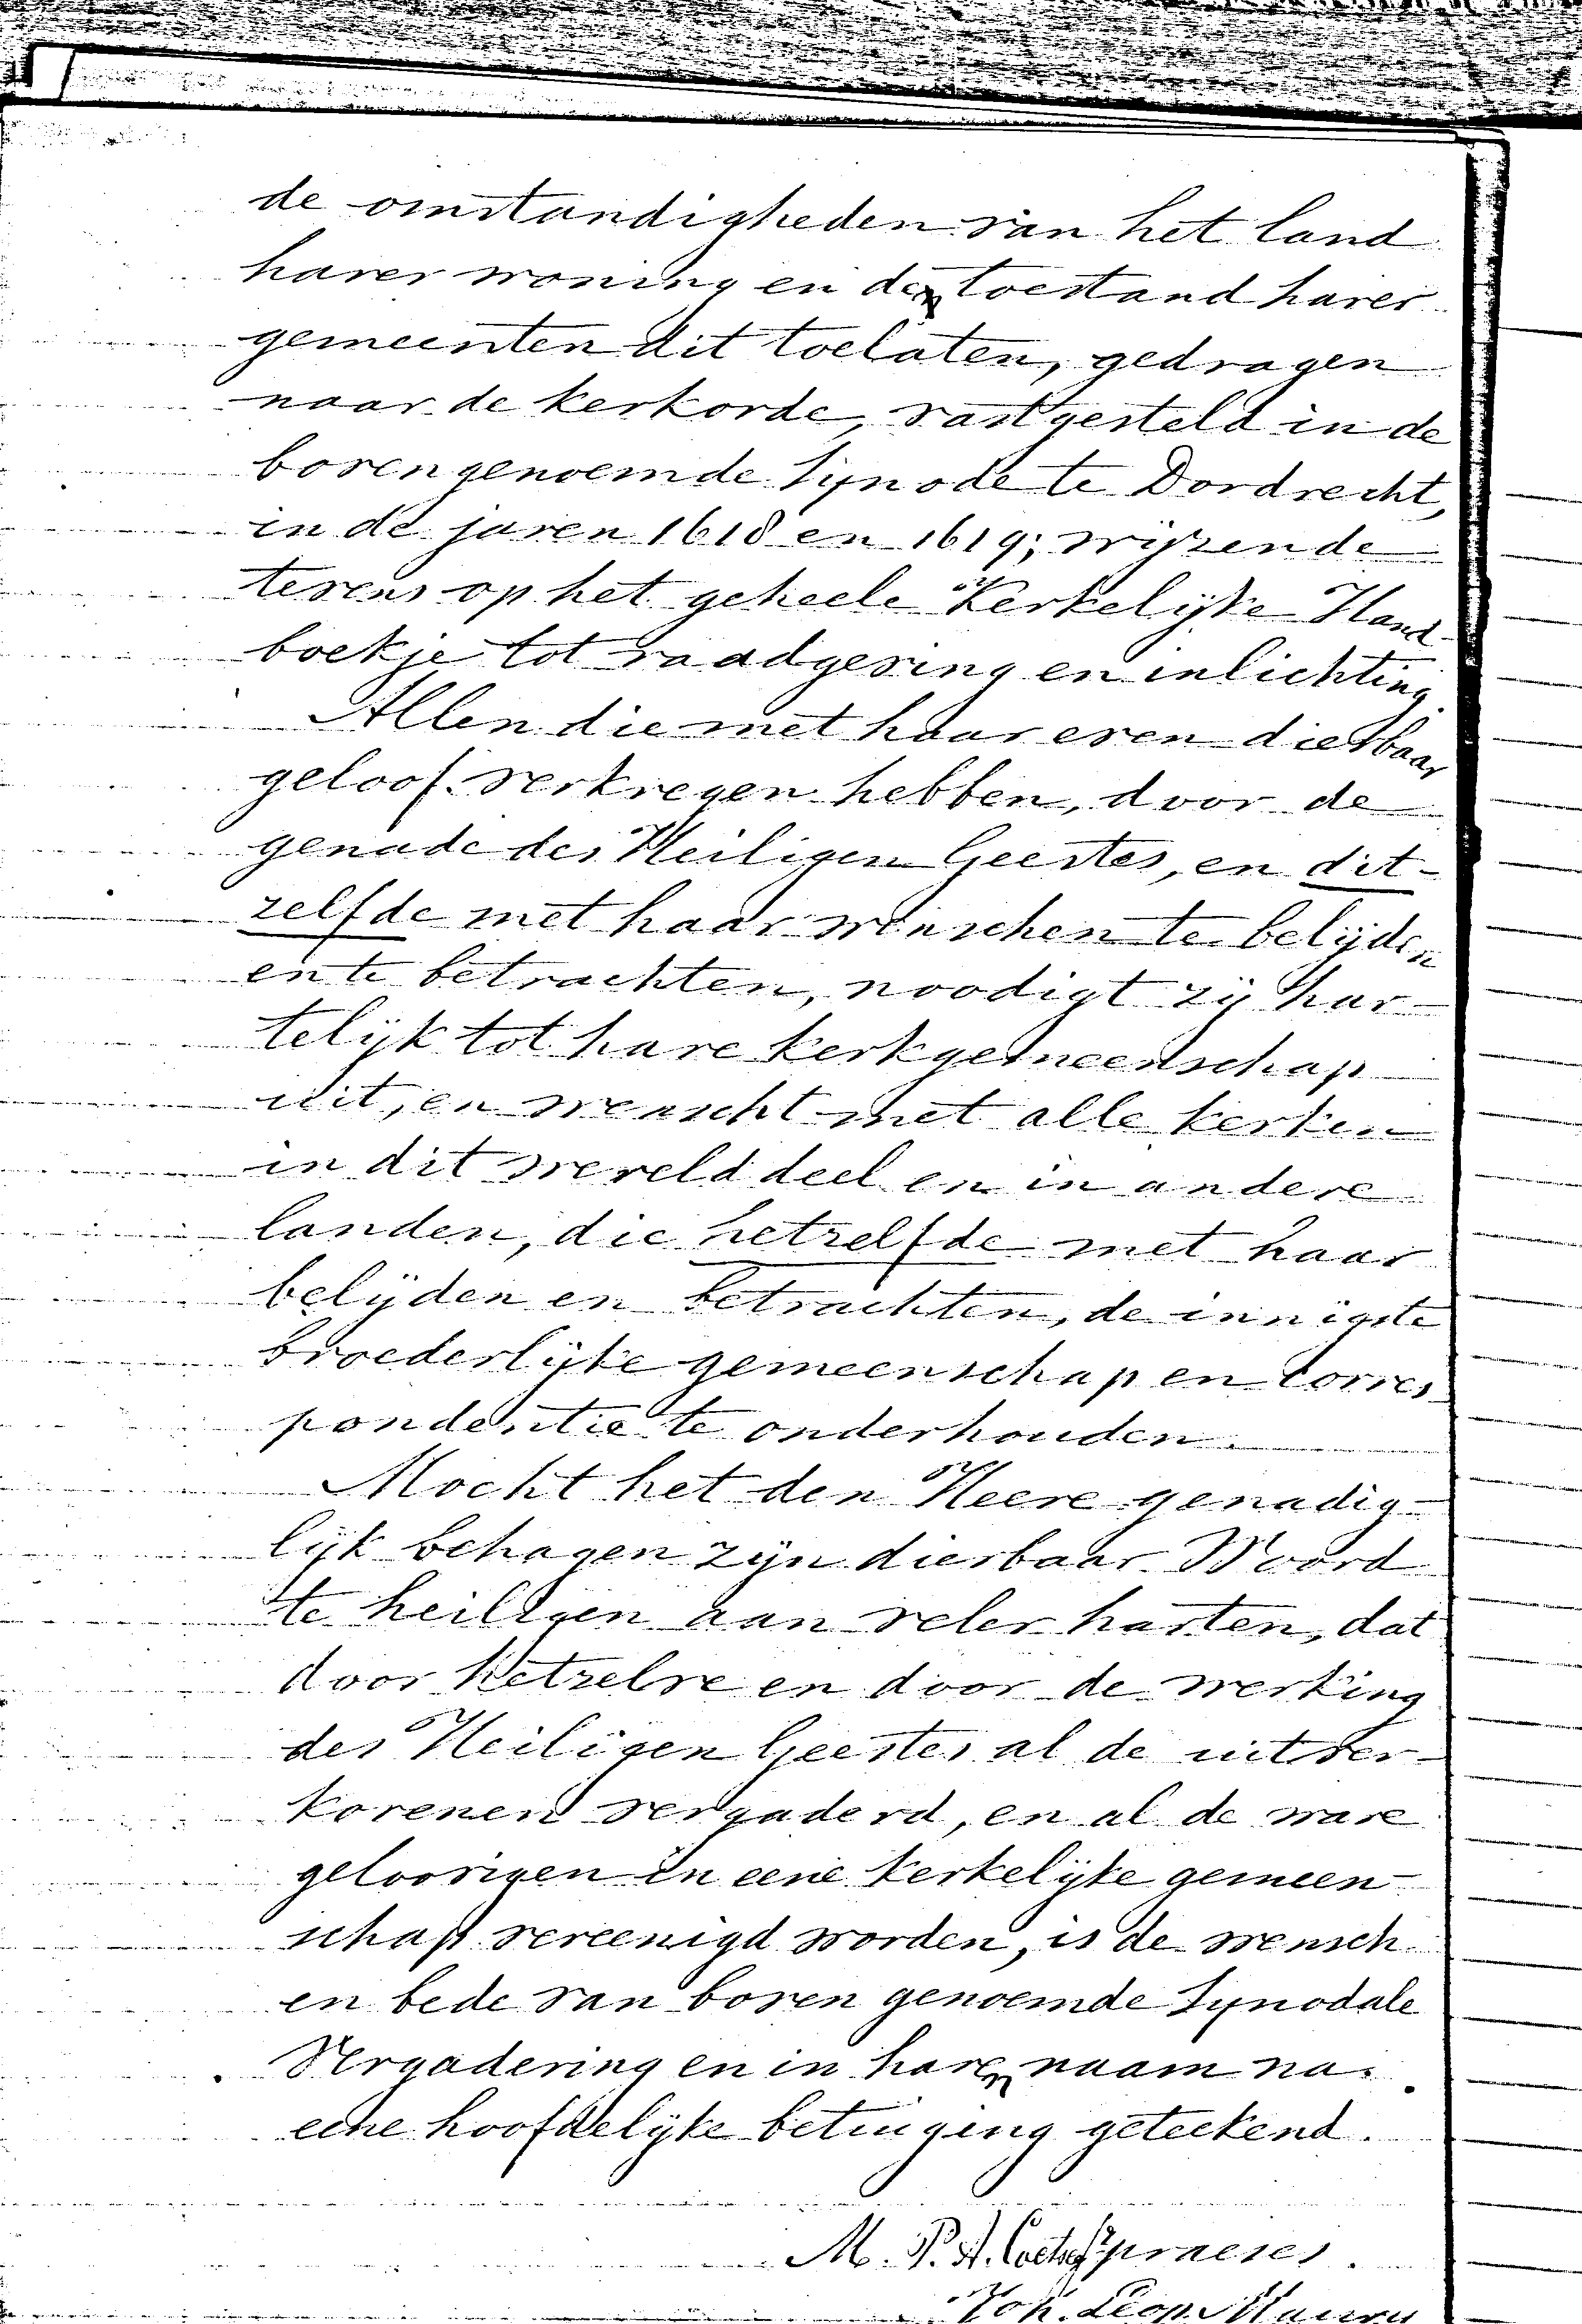 de omstandigheden van het land
harer woning en den toestand harer
gemeenten dit toelaten, gedragen
naar de kerkorde, vastgesteld in de
bovengenoemde Synode te Dordrecht,
in de jaren 1618 en 1619; wijzende
tevens op het geheele Kerkelijke Hand
boekje tot raadgeving en inlichting.
Allen die met haar even dierbaar
geloof verkregen hebben, door de
genade des Heiligen Geestes, en dit-
zelfde met haar wenschen te belijden
en te betrachten, noodigt zij har-
telijk tot hare kerkgemeenschap
uit, en wenscht met alle kerken
in dit werelddeel en in andere
landen, die hetzelfde met haar
belijden en betrachten, de innigste
broederlijke gemeenschap en Corres
pondentie te onderhouden.
Mocht het den Heere genadig-
lijk behagen zijn dierbaar Woord
te heiligen aan veler harten, dat
door hetzelve en door de werking
des Heiligen Geestes al de uitver-
korenen vergaderd, en al de ware
geloovigen in eene kerkelijke gemeen-
schap vereenigd worden, is de wensch
en bede van boven genoemde Synodale
Vergadering en in haren naam na
eene hoofdelijke betuiging geteekend.
M. P. A. Coetsee praeses.
Joh. Leop. Maury